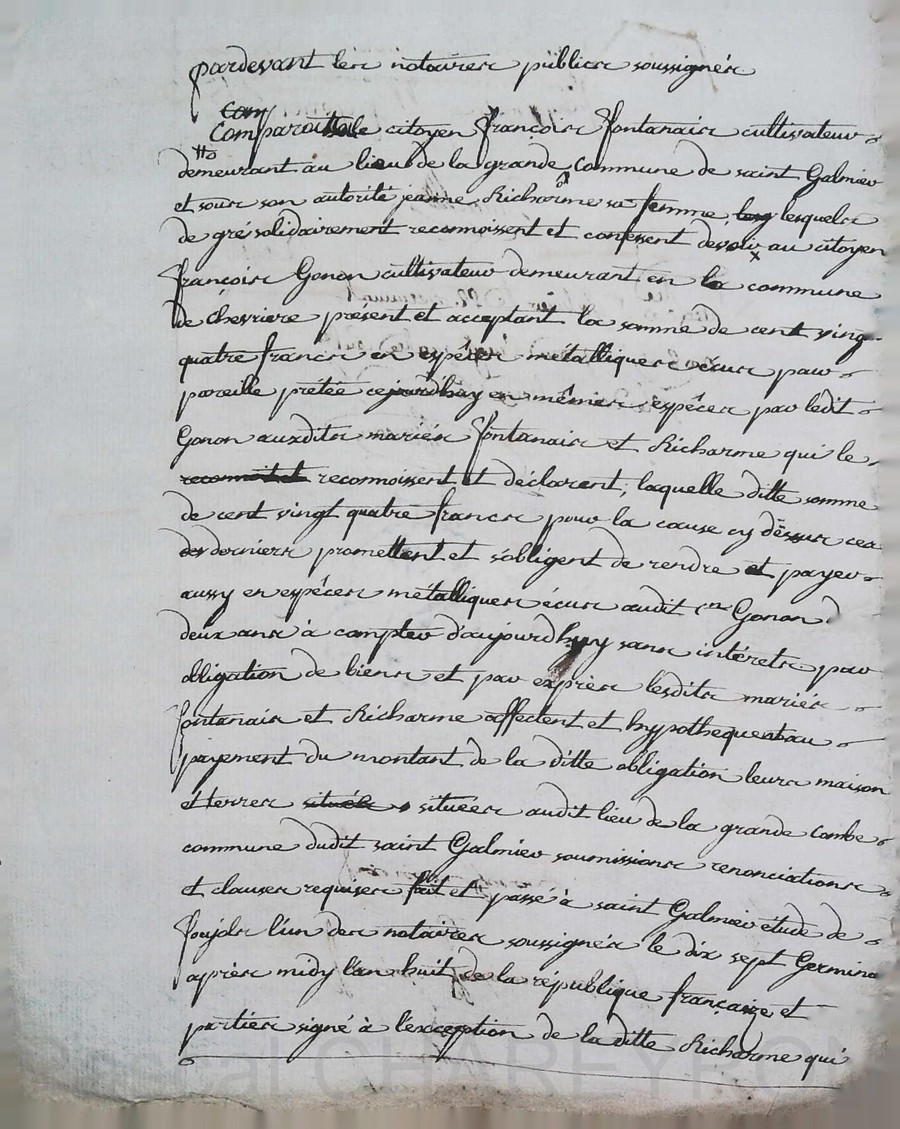 pardevant les notaires publics soussignés
Com
Comparoit le citoyen françois fontanais cultivateur
demeurant au lieu de la grande commune de saint Galmier
et sous son autorité jeanne Richarme sa femme lesquels
de gré solidairement reconnoissent et confessent devoir au citoyen
françois Gonon cultivateur demeurant en la commune
de chevriere présent et acceptant la somme de cent ving
quatre francs en espéces métalliques écus pour
pareille prétée cejourdhuy en mêmes espéces par ledit
Gonon auxdits mariés fontanais et Richarme qui le
reconnoissent et déclarent, laquelle ditte somme
de cent vingt quatre francs pour la cause cy déssus ces
derniers promettent et s'obligent de rendre et payer
aussy en espéces métalliques écus audit Cen Gonon d
deux ans à compter d'aujourdhuy sans intérets par
obligation de biens et par exprès lesdits mariés
fontanais et Richarme affectent et hypothequent au
payement du montant de la ditte obligation leurs maison
et terres situées situées audit lieu de la grande combe
commune dudit saint Galmier soumissions renonciations
et clauses requises fait et passé à saint Galmier étude de
foujols l'un des notaires soussignés le dix sept Germina
après midy l'an huit de la république française et
parties signé à l'exception de la ditte Richarme qui
CHAREYRON